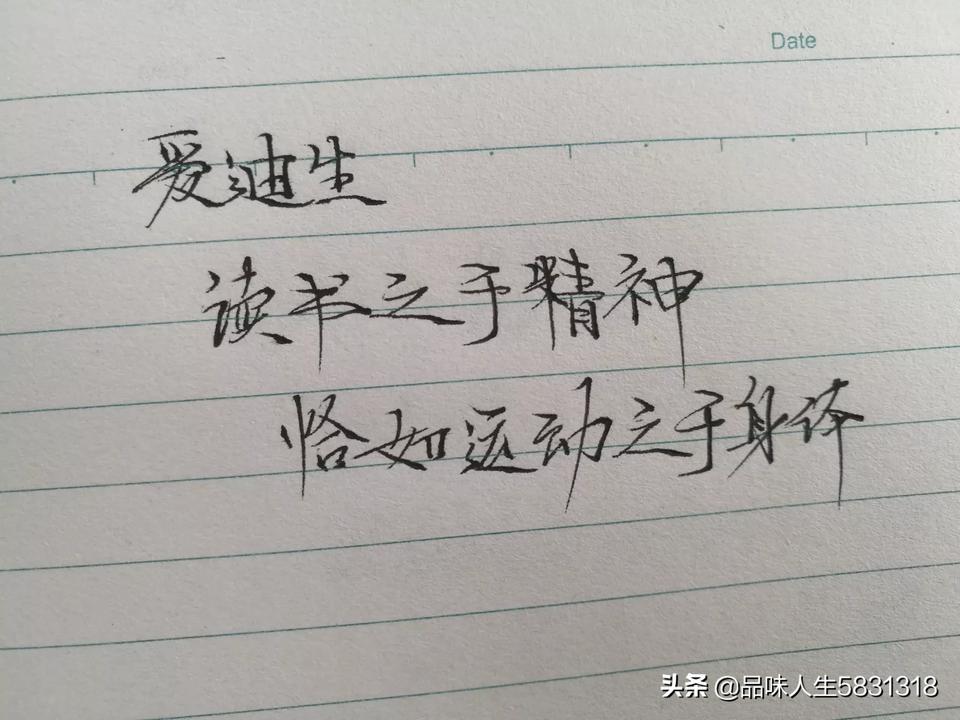 Date
爱迪生
读书之于精神
恰如运动之于身体
头条 @品味人生5831318